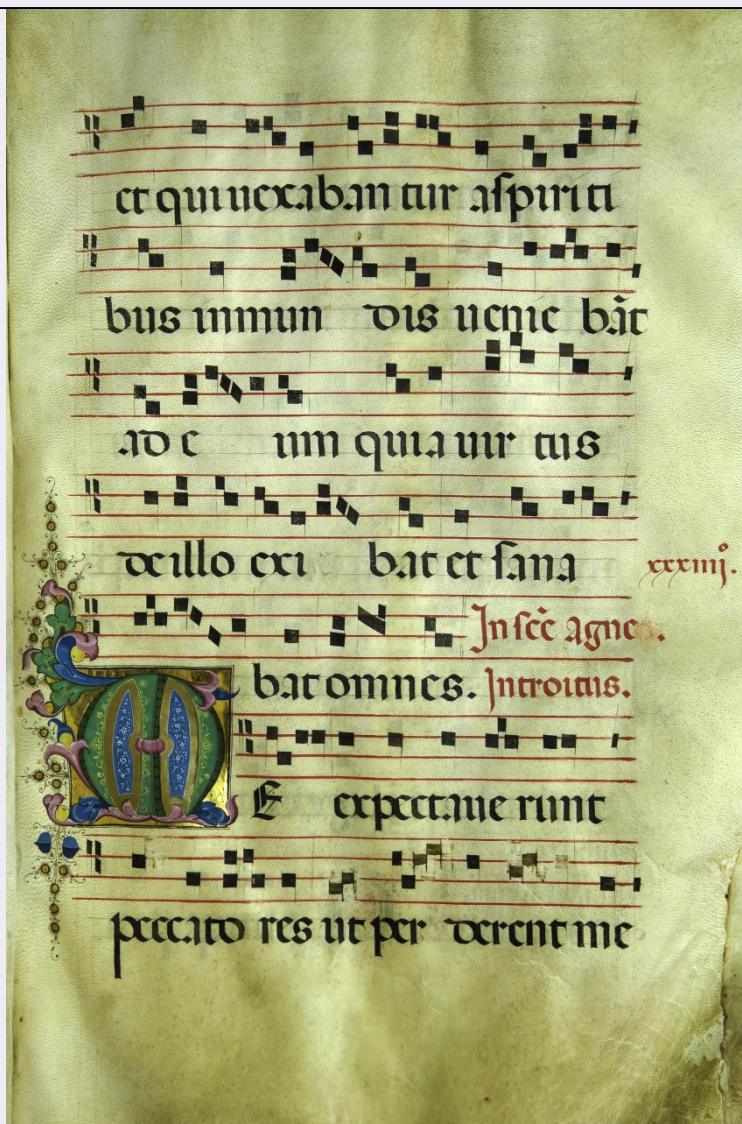 et qui uexabantur aspiriti
bus inmundis uenie bãt
ad eum quia uirtus
deillo exi bat et sana
xxxiiijº.
In scẽ agne .
bat omnes. Introitus.
ME expectauerunt
peccatores ut perderent me